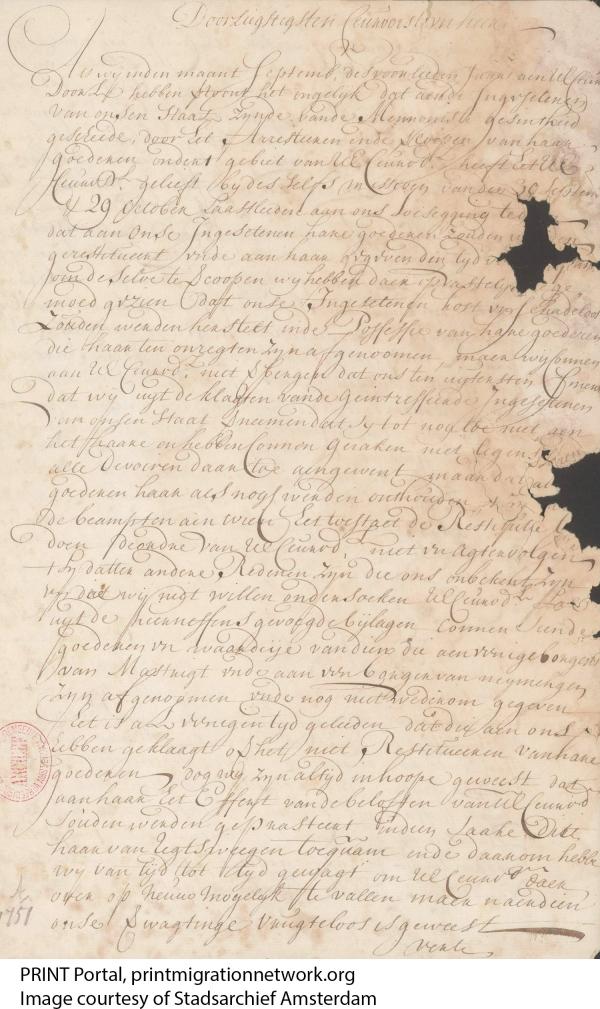 Doorlugtigsten Ceurvorst en heer
Als wij in den maant Septemb. des voorleeden Jaars aen UE Ceurv.
Door Lt hebben vertoont het ongelyk dat aende Ingeselenen
van onsen Staat zynde vande Mennonisse gesintheid
geschiede, door het Arresteeren ende vercoopen van haare
goederen onder 't gebiet van UE Ceurvd. heeft het UE
Ceurvd. gelieft by des selfs missiven van den 30 Septem
& 29 October Laastleeden aan ons toesegging te
dat aan onse Ingesetenen hare goederen zouden
gerestitueert ende aan haar gegeven den tyd
om de selve te vercoopen wy hebben daer op
moed gezien dat onse Ingesetenen kost en schadeloos
Zouden werden herstelt inde Possessie van hare goederen
die haar ten onregten zyn afgenoomen, maer wy connen
aan UE Ceurvd. niet Bergen dat ons ten uytersten
dat wy uyt de klagten vande Geintresseerde Ingesetenen
van onsen Staat verneemen dat sy tot nog toe niet aen
het haare en hebben Connen Geraken niet tegen
alle Devoiren daar toe aengewent maar dat
goederen haar als nog werden onthouden,
de beampten aen wien het toestaet de Restitutie
doen de ordre van UE Ceurvd. niet en agtervolgen
't zy datter andere Redenen zyn die ons onbekent zyn
en die wy nigt willen ondersoeken UE Ceurvd.
uyt de hier neffens gevoegde bylagen Connen sien de
goederen en waardije van dien die aen
van Mastrigt ende aan een borger van neymeegen
zyn afgenoomen ende nog niet wederom gegeven
Het is al eenigen tyd geleden dat die aen ons
hebben geklaagt over het niet Restitueeren van hare
goederen dog wy zyn altyd in hoope geweest dat
aan haar het Effect van de beloften van UE Ceurvd
souden werden gepresteert indien saake Dit
haar van regtsweegen toequam ende daarom hebben
wy van tyd tot tyd gewagt om UE Ceurvd. daer
over op nieuw moeyelyk te vallen maer naerdien
onse verwagtinge vrugteloos is geweest
1751
PRINT Portal, printmigrationnetwork.org
Image courtesy of Stadsarchief Amsterdam